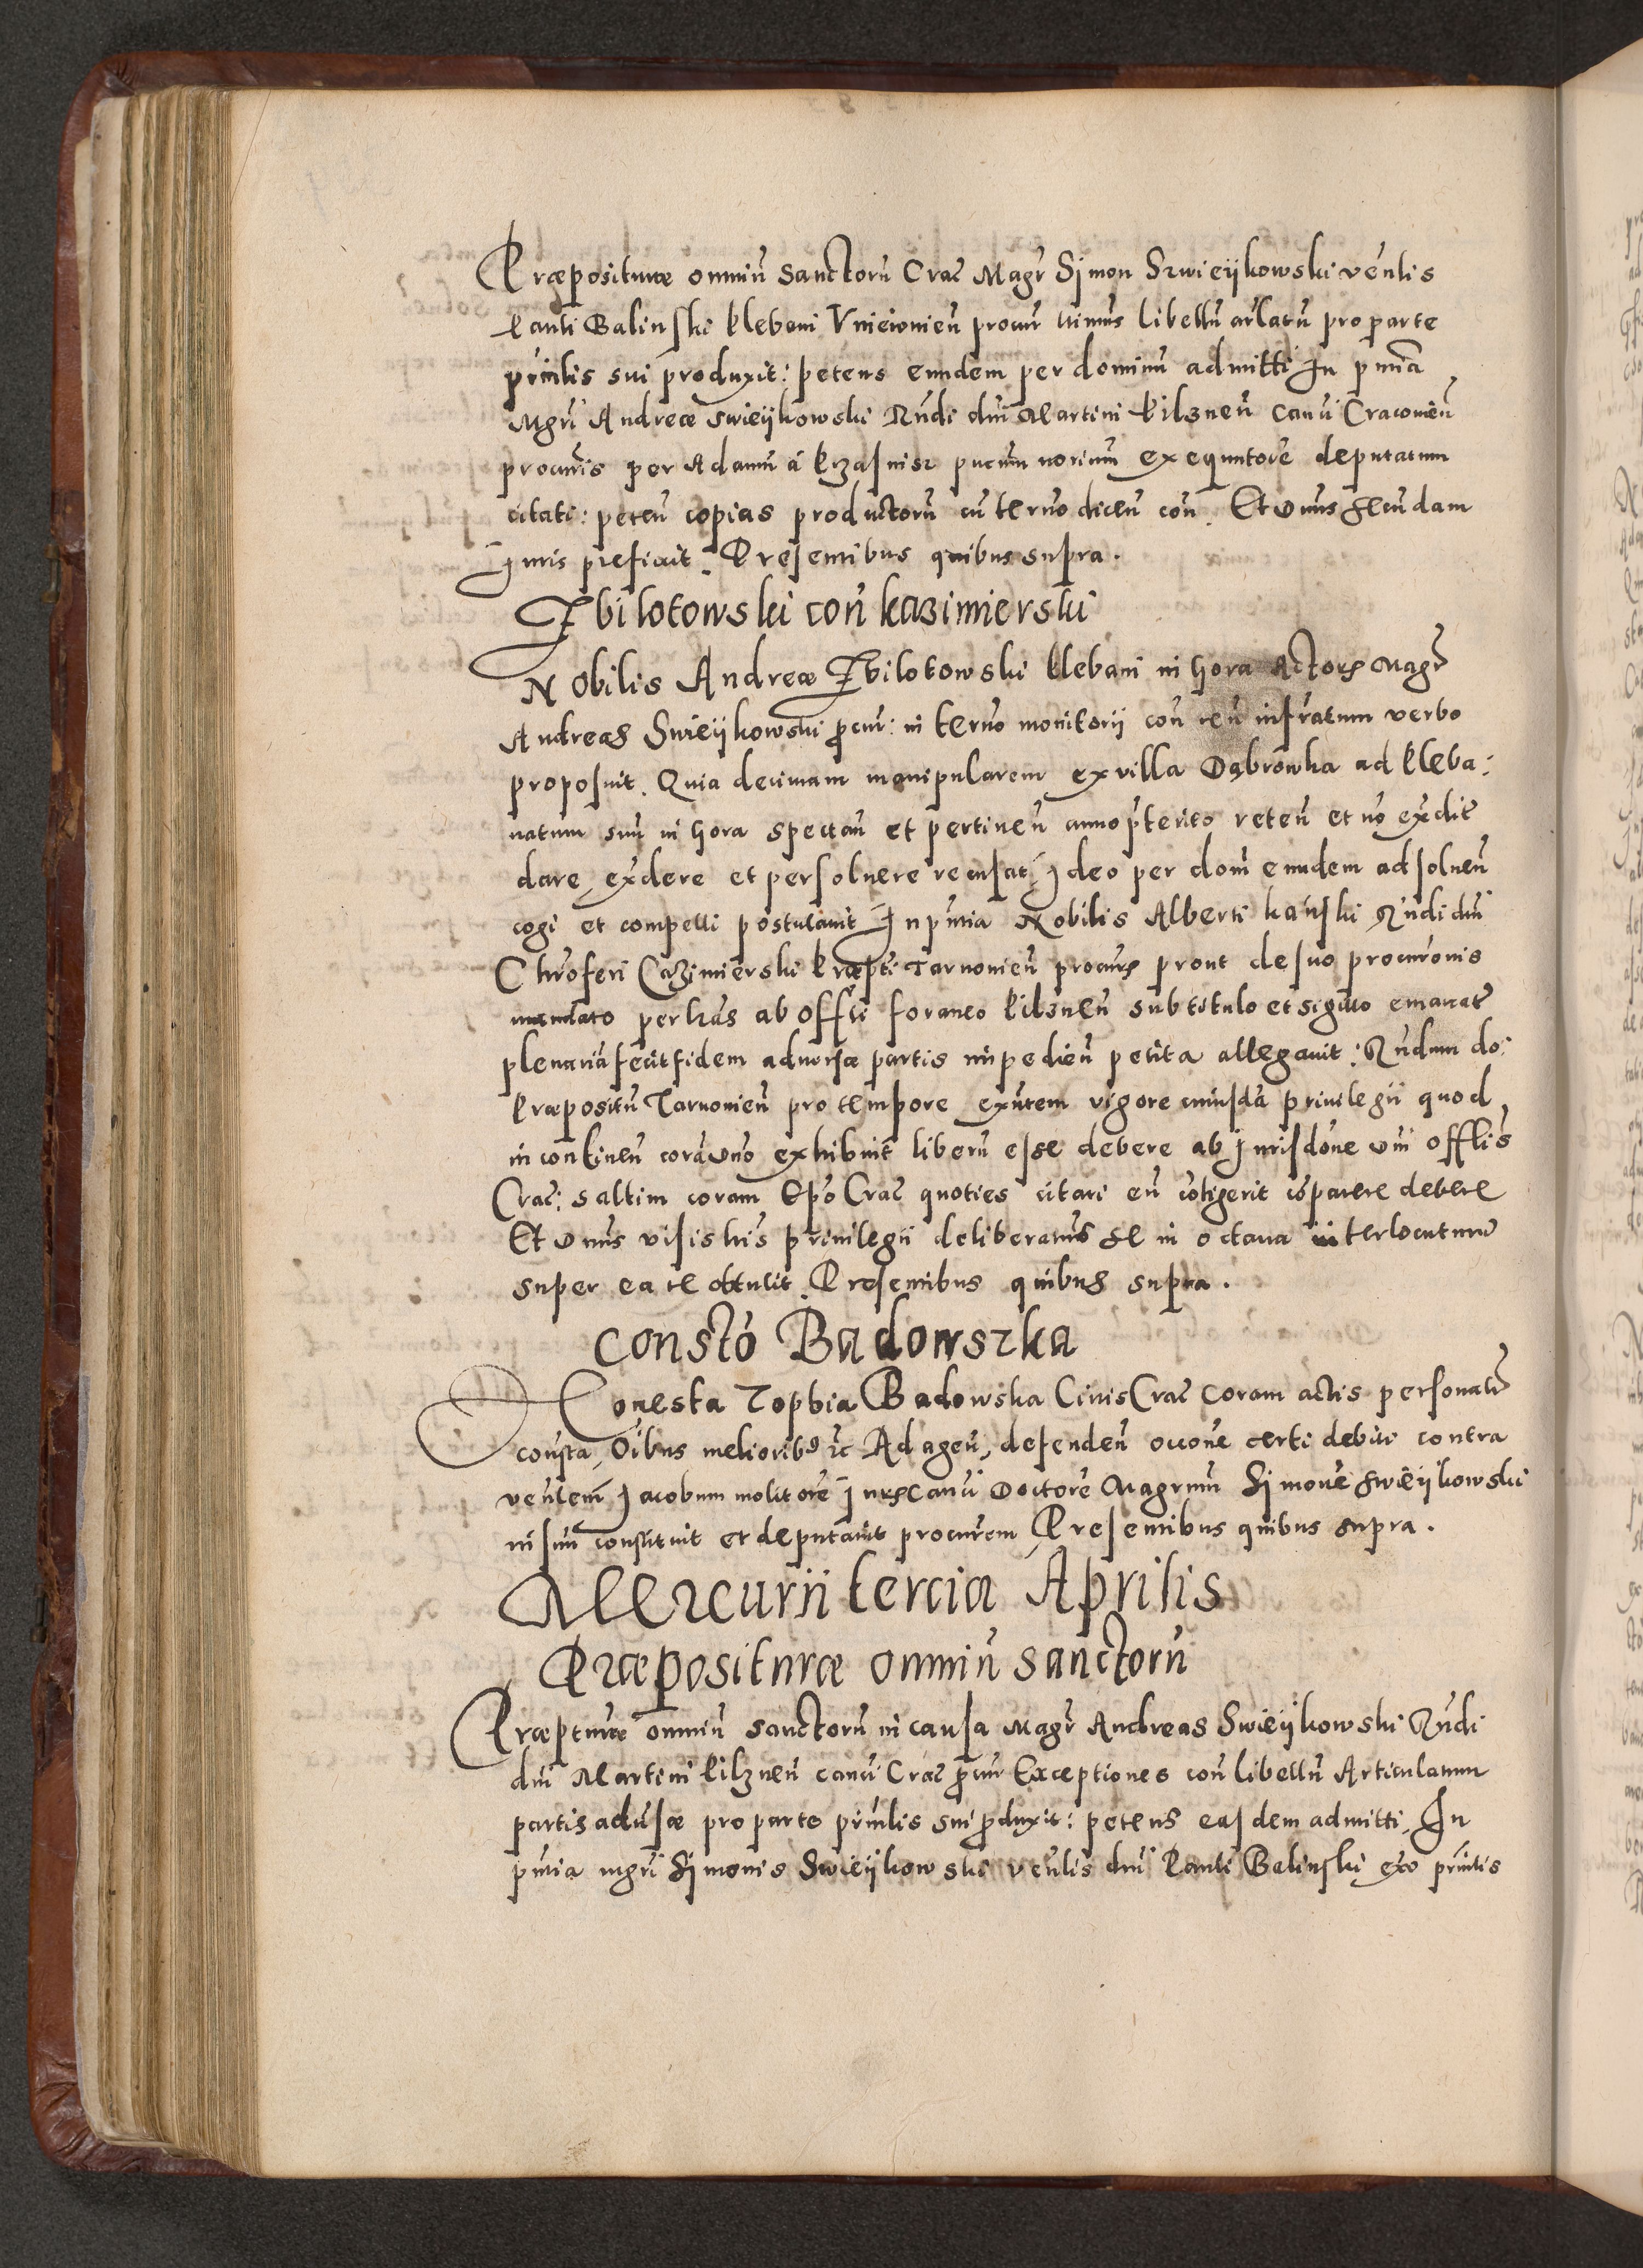 Præposituræ omniũ Sanctorũ Crac̃ Magr̃ Sÿmon Szwieÿkowski vẽnlis
Lauri Balinski Plebani Vnieiouieñ procur̃ libellũ ar̃latũ pro parte
prin̄lis sui produxit: petens eundem per dominũ admitti In p̃ntia
Mgr̃i Andreæ Swieÿkowski Rñdi dñi Martini Pilzneñ Canci Cracouieñ
procur̃is per Adamũ à exequutorẽ deputatum
citati: peteñ copias productorũ cũ ter̃no diceñ coñ. Et Dnus secundam
Juris prefixit. Presentibus quibus supra.
Zbilotowski coñ Kazimierski
Nobilis Andreæ Zbilotowski Plebani in hora Actoris Magr̃
Andreas Swieÿkowski p̃cur: in ter̃no monitorii coñ reũ infr̃atum verbo
proposuit. Quia decimam manipularem ex villa Dąbrowka ad pleba:
natum suũ in hora spectañ et pertineñ anno p̃terito reteñ et nõ exdit̃
dare, ex̃dere et persoluere recusat, Ideo per dom̃ eundem ad solueñ
cogi et compelli postulauit In p̃ntia Nobilis Alberti Kański Rñdi dñi
Chr̃oferi Cazimierski Præpti Tarnouieñ procur̃s prout de suo procur̃onis
mandato per lr̃as ab offi̇̃ foraneo Pilzneñ sub titulo et sigillo emanat̃
plenariã fecit fidem aduersæ partis impedieñ petita allegauit: Rñdum do:
Præpositũ Tarnouieñ pro tempore ex̃ntem vigore cuiusdã priuilegii quod
in contineñ corã Dno exhibuit liberũ esse debere ab jurisdõne Dñi Offlis
Crac̃: saltim coram Ep̃o Crac̃ quoties citari eũ cõtigerit cõparere debere
Et Dnus visis his priuilegii deliberaturus se in octaua interlocuturũ
super ea re obtulit. Presentibus quibus supra.
Constõ Badowszka
Honesta Zophia Badowska Ciuis Crac̃ coram actis personalr̃
consta, Oibus melioribꝰ ꝛc Ad ageñ, defendeñ occõne certi debiti contra
ven̄lem Jacobum molitorẽ Juris Canci Doctorẽ Magrum Sÿmonẽ Swieÿkowski
in suũ constituit et deputauit procur̃em Presentibus quibus supra.
Mercurii tercia Aprilis
Præpositurę omniũ sanctorũ
Præpturæ omniũ sanctorũ in causa Magr̃ Andreas Swieÿkowski Rñdi
dñi Martini Pilzneñ canci Crac̃ p̃cur Exceptiones coñ libellũ Articulatum
partis adu̇sæ pro parte prin̄lis sui p̃duxit: petens easdem admitti, In
p̃ntia mgr̃i Sÿmonis Swieÿkowski vẽnlis dñi Lauri Balinski ex̃o prin̄lis